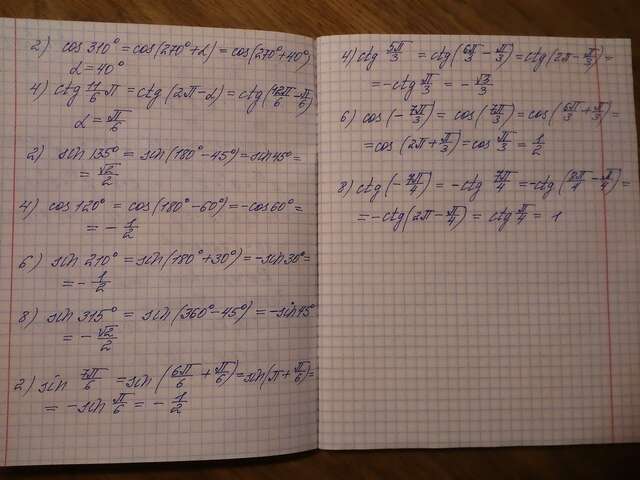 2) cos 310° = cos(270°+α) = cos(270°+40°)
α = 40°
4) ctg 11/6 π = ctg(2π-α) = ctg(12π/6 - π/6)
α = π/6
2) sin 135° = sin(180°-45°) = sin 45° =
= √2/2
4) cos 120° = cos(180°-60°) = -cos 60° =
= - 1/2
6) sin 210° = sin(180°+30°) = -sin 30° =
= - 1/2
8) sin 315° = sin(360°-45°) = -sin 45°
= - √2/2
2) sin 7π/6 = sin(6π/6 + π/6) = sin(π + π/6) =
= -sin π/6 = - 1/2
4) ctg 5π/3 = ctg(6π/3 - π/3) = ctg(2π - π/3) =
= -ctg π/3 = - √3/3
6) cos(- 7π/3) = cos(7π/3) = cos(6π/3 + π/3) =
= cos(2π + π/3) = cos π/3 = 1/2
8) ctg(- 7π/4) = -ctg 7π/4 = -ctg(8π/4 - π/4) =
= -ctg(2π - π/4) = ctg π/4 = 1